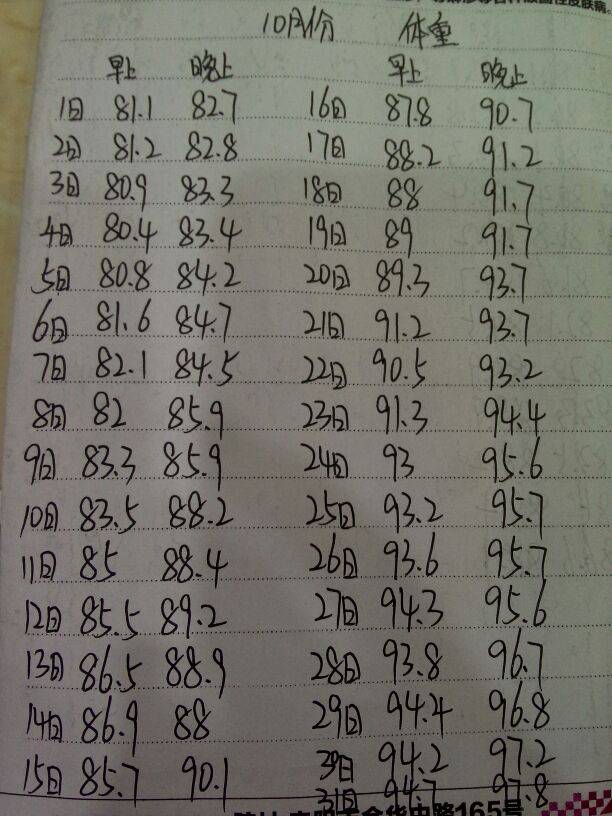 10月份 体重
早上 晚上 早上 晚上
1日 81.1 82.7 16日 87.8 90.7
2日 81.2 82.8 17日 88.2 91.2
3日 80.9 83.3 18日 88 91.7
4日 80.4 83.4 19日 89 91.7
5日 80.8 84.2 20日 89.3 93.7
6日 81.6 84.7 21日 91.2 93.7
7日 82.1 84.5 22日 90.5 93.2
8日 82 85.9 23日 91.3 94.4
9日 83.3 85.9 24日 93 95.6
10日 83.5 88.2 25日 93.2 95.7
11日 85 88.4 26日 93.6 95.7
12日 85.5 89.2 27日 94.3 95.6
13日 86.5 88.9 28日 93.8 96.7
14日 86.9 88 29日 94.4 96.8
15日 85.7 90.1 30日 94.2 97.2
31日 94.7 97.8
165号